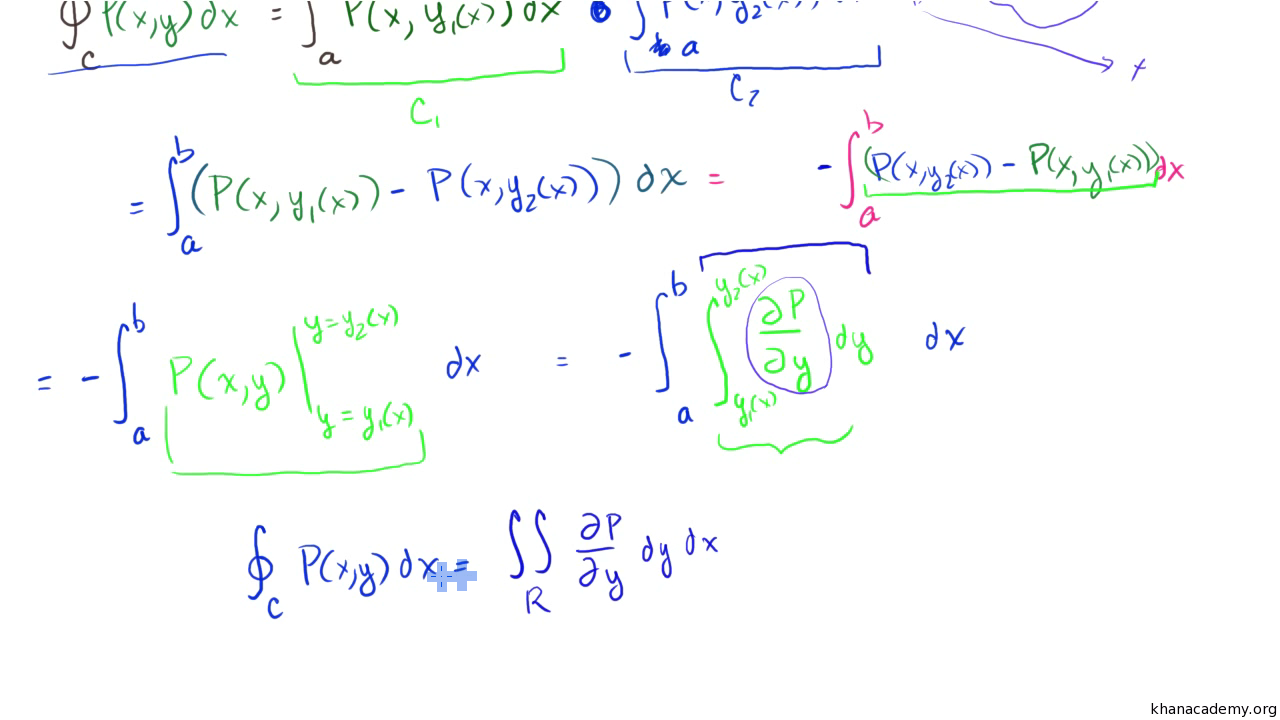 ∮_C P(x,y) dx = ∫_a P(x, y₁(x)) dx ∫_a P(x, y₂(x))
C₁ C₂ x
= ∫_a^b (P(x, y₁(x)) - P(x, y₂(x))) dx = - ∫_a^b (P(x, y₂(x)) - P(x, y₁(x))) dx
= - ∫_a^b P(x,y) |_{y = y₁(x)}^{y = y₂(x)} dx = - ∫_a^b ∫_{y₁(x)}^{y₂(x)} ∂P/∂y dy dx
∮_C P(x,y) dx = ∬_R ∂P/∂y dy dx
khanacademy.org